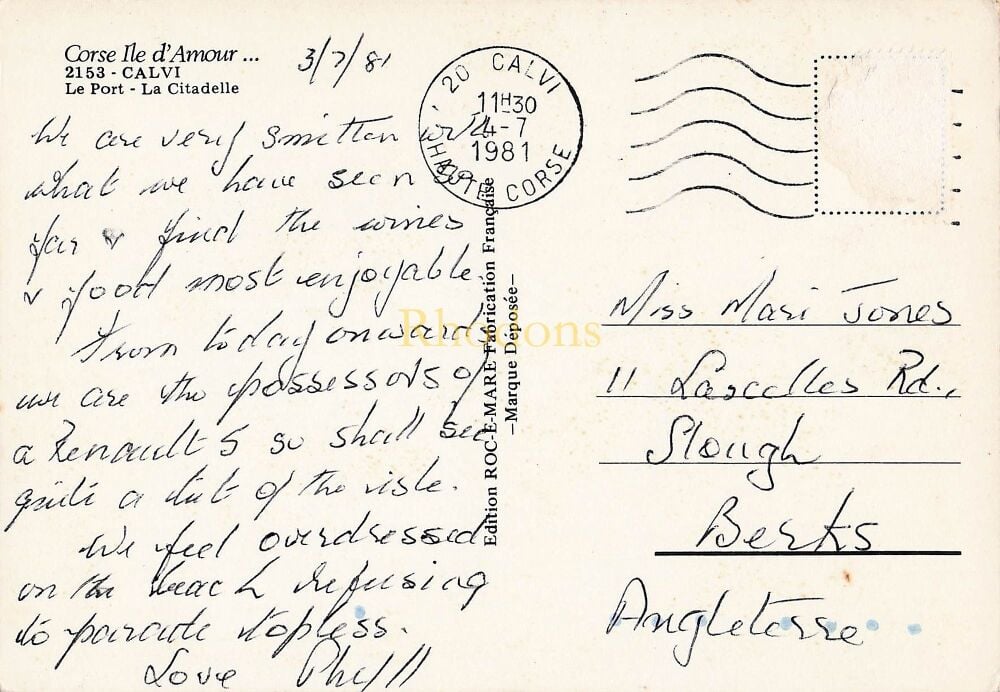 Corse Ile d'Amour ...
2153 - CALVI
Le Port - La Citadelle
3/7/81
We are very smitten with
what we have seen so
far & find the wines
& food most enjoyable.
From today onwards
we are the possessors of
a Renault 5 so shall see
quite a bit of the isle.
We feel overdressed
on the beach refusing
to parade topless.
Love Phyll
20 CALVI
11H30
4-7
1981
HAUTE CORSE
Edition ROC-E-MARE Fabrication Française
—Marque Déposée—
Rhodons
Miss Mari Jones
11 Lascelles Rd.,
Slough
Berks
Angleterre